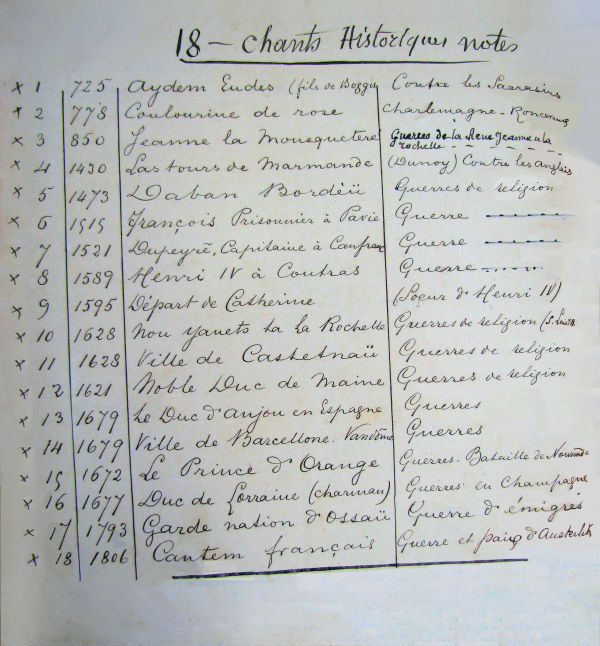 18 — chants Historiques notés
x 1 725 Aydem Eudes (fils de Boggis Contre les Sarrasins
x 2 778 Coulourine de rose Charlemagne - Roncevaux
x 3 850 Jeanne la Mousquetère Guerres de la Reine Jeanne a la rochelle
x 4 1430 Las tours de Marmande (Dunoy) Contre les Anglais
x 5 1473 Daban Bordèü Guerres de religion
x 6 1515 François Prisonnier à Pavie Guerre
x 7 1521 Dupeyré, Capitaine à Canfranc Guerre
x 8 1589 Henri IV à Coutras Guerre
x 9 1595 Départ de Catherine (Soeur d'Henri IV)
x 10 1628 Nou yanets ta La Rochelle Guerres de religion
x 11 1628 Ville de Castetnaü Guerres de religion
x 12 1621 Noble Duc de Maine Guerres de religion
x 13 1679 Le Duc d'Anjou en Espagne Guerres
x 14 1679 Ville de Barcellone. Vandôme Guerres
x 15 1672 Le Prince d'Orange Guerres. Bataille de
x 16 1677 Duc de Lorraine (charman) Guerres en Champagne
x 17 1793 Garde nation d'Ossaü Guerre d'émigrés
x 18 1806 Cantem français Guerre et paix d'Austerlitz